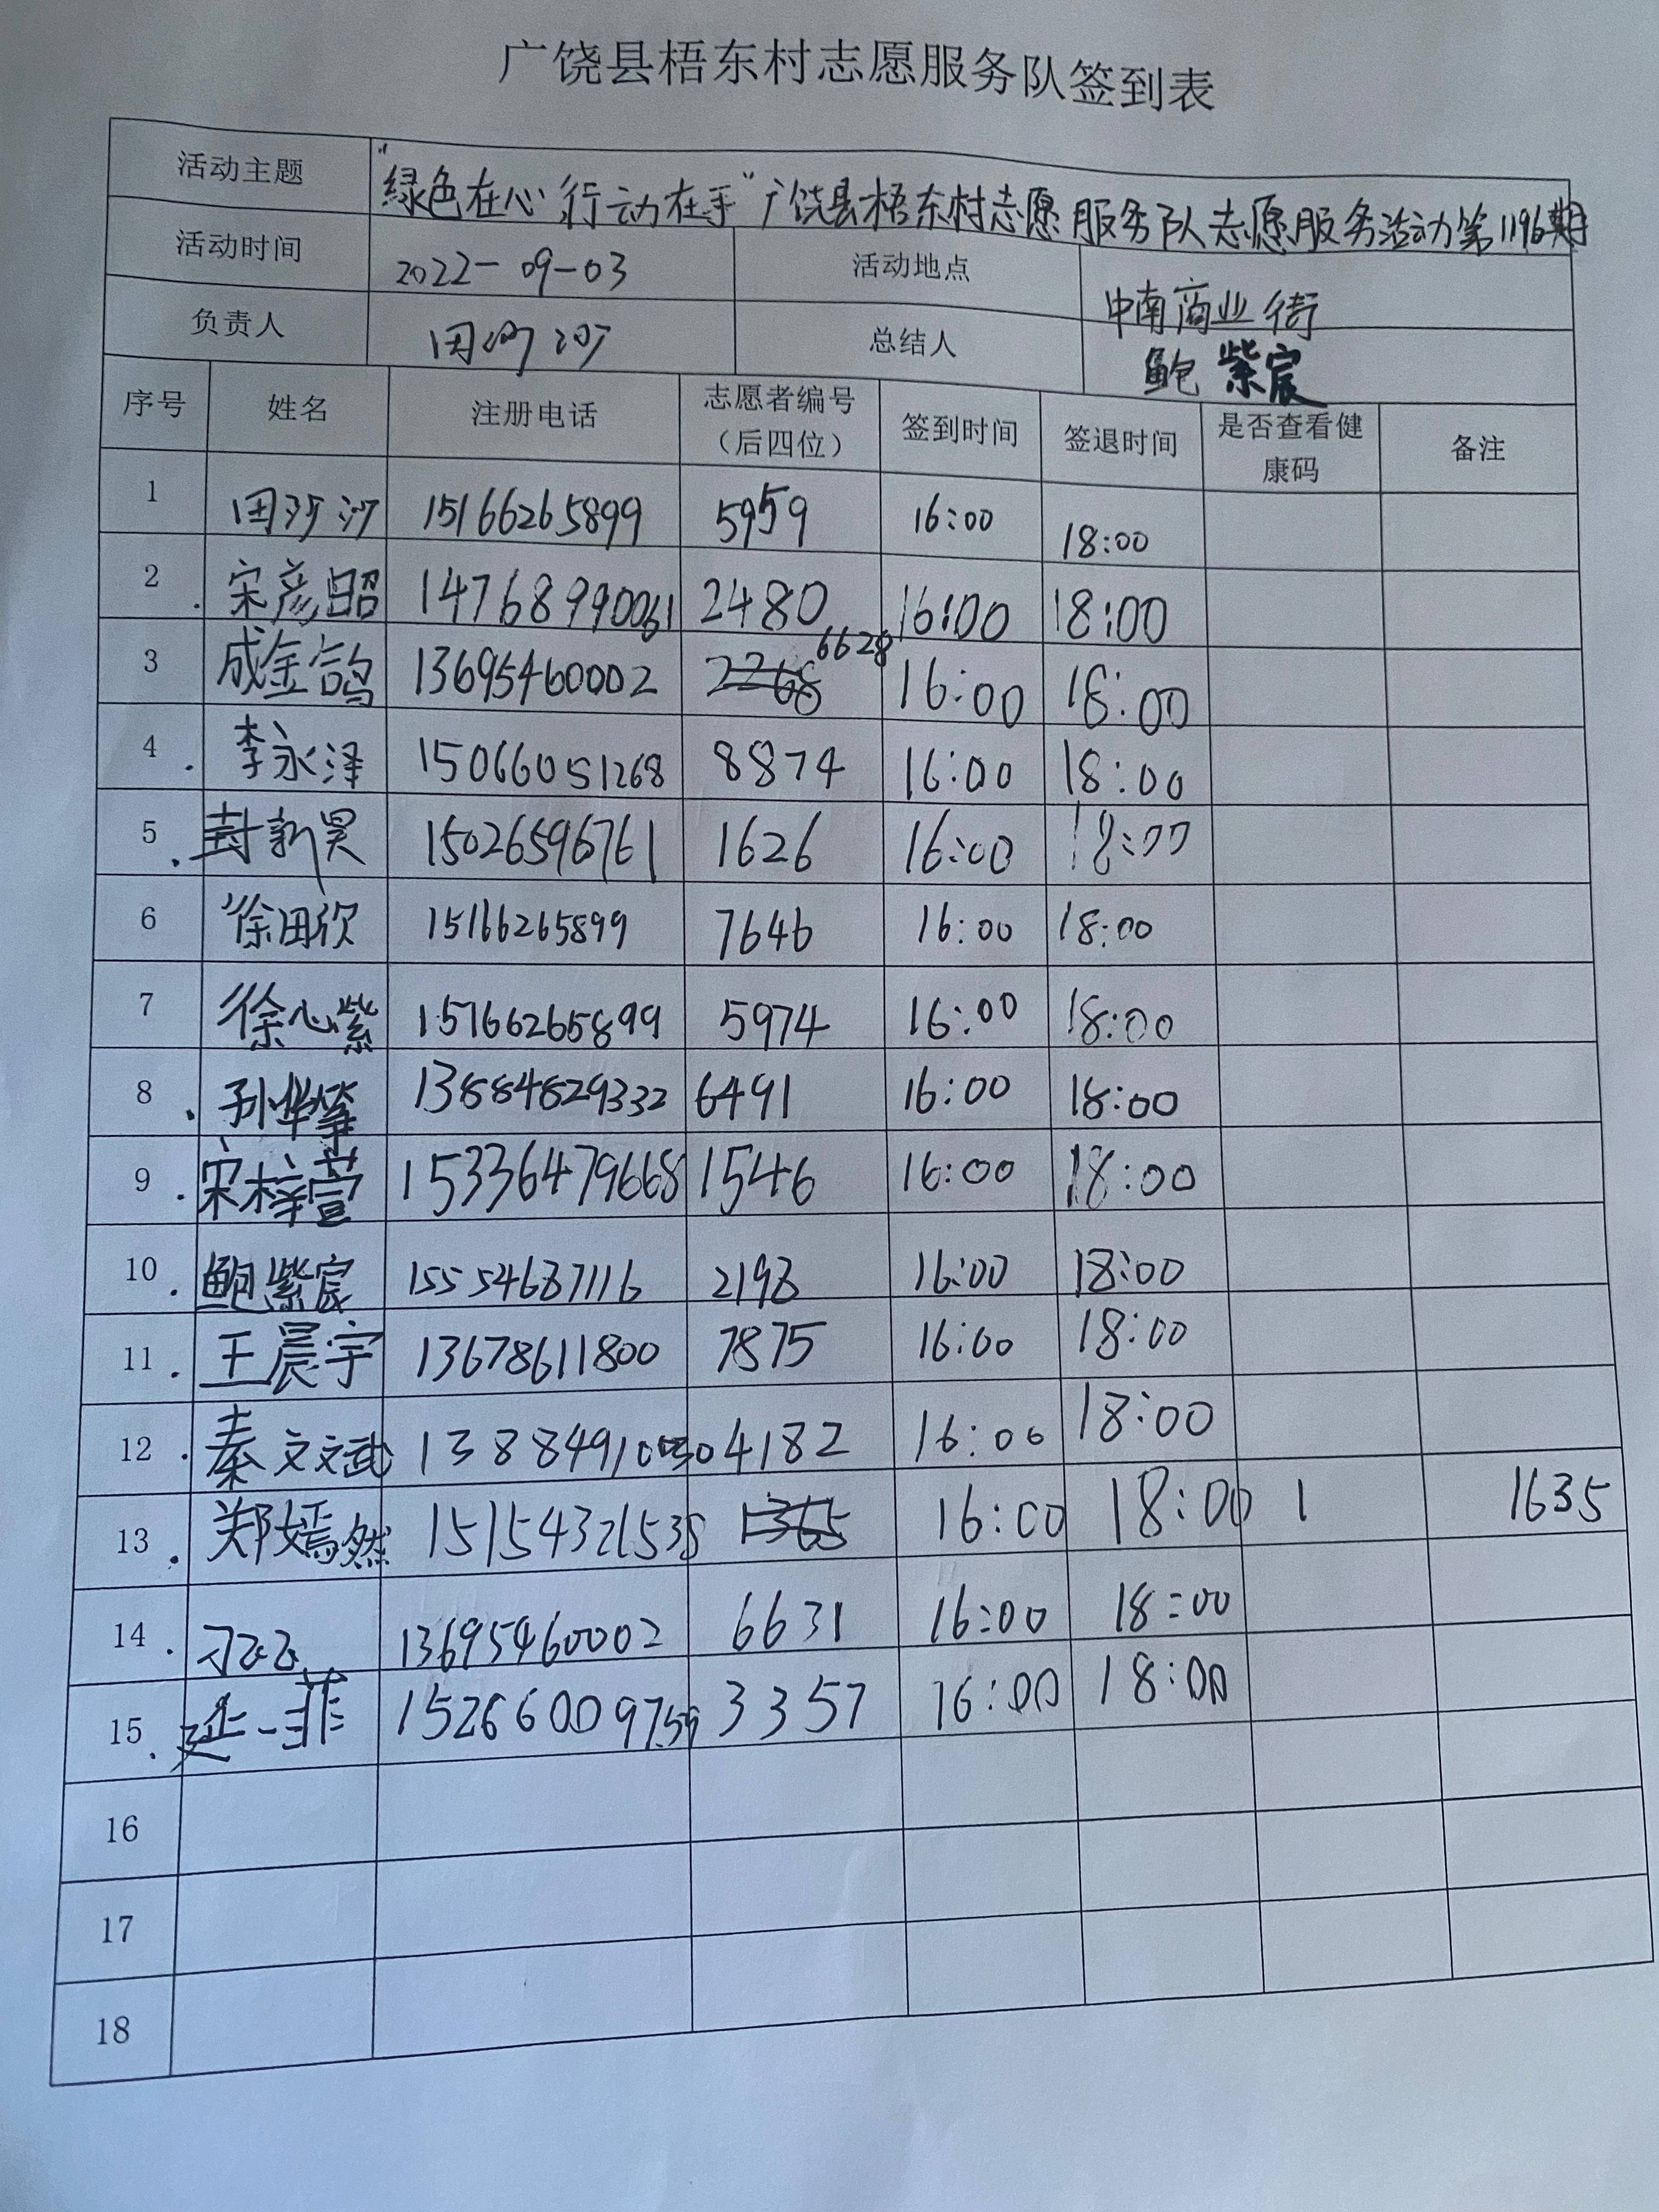 广饶县梧东村志愿服务队签到表
活动主题 "绿色在心 行动在手"广饶县梧东村志愿服务队志愿服务活动第1196期
活动时间 2022-09-03 活动地点 中南商业街
负责人 田沙沙 总结人 鲍紫宸
序号 姓名 注册电话 志愿者编号（后四位） 签到时间 签退时间 是否查看健康码 备注
1 田沙沙 15166265899 5959 16:00 18:00
2 宋彦昭 14768990061 2480 16:00 18:00
3 成金鸽 13695460002 6628 16:00 18:00
4 李永泽 15066051268 8874 16:00 18:00
5 封新昊 15026596761 1626 16:00 18:00
6 徐田欣 15166265899 7646 16:00 18:00
7 徐心紫 15166265899 5974 16:00 18:00
8 孙华擎 13884829332 6491 16:00 18:00
9 宋梓萱 15336479668 1546 16:00 18:00
10 鲍紫宸 15554687116 2198 16:00 18:00
11 王晨宇 13678611800 7875 16:00 18:00
12 秦文文武 4182 16:00 18:00
13 郑嫣然 15154321538 1365 16:00 18:00 1 1635
14 13695460002 6631 16:00 18:00
15 延一菲 15266009759 3357 16:00 18:00
16
17
18